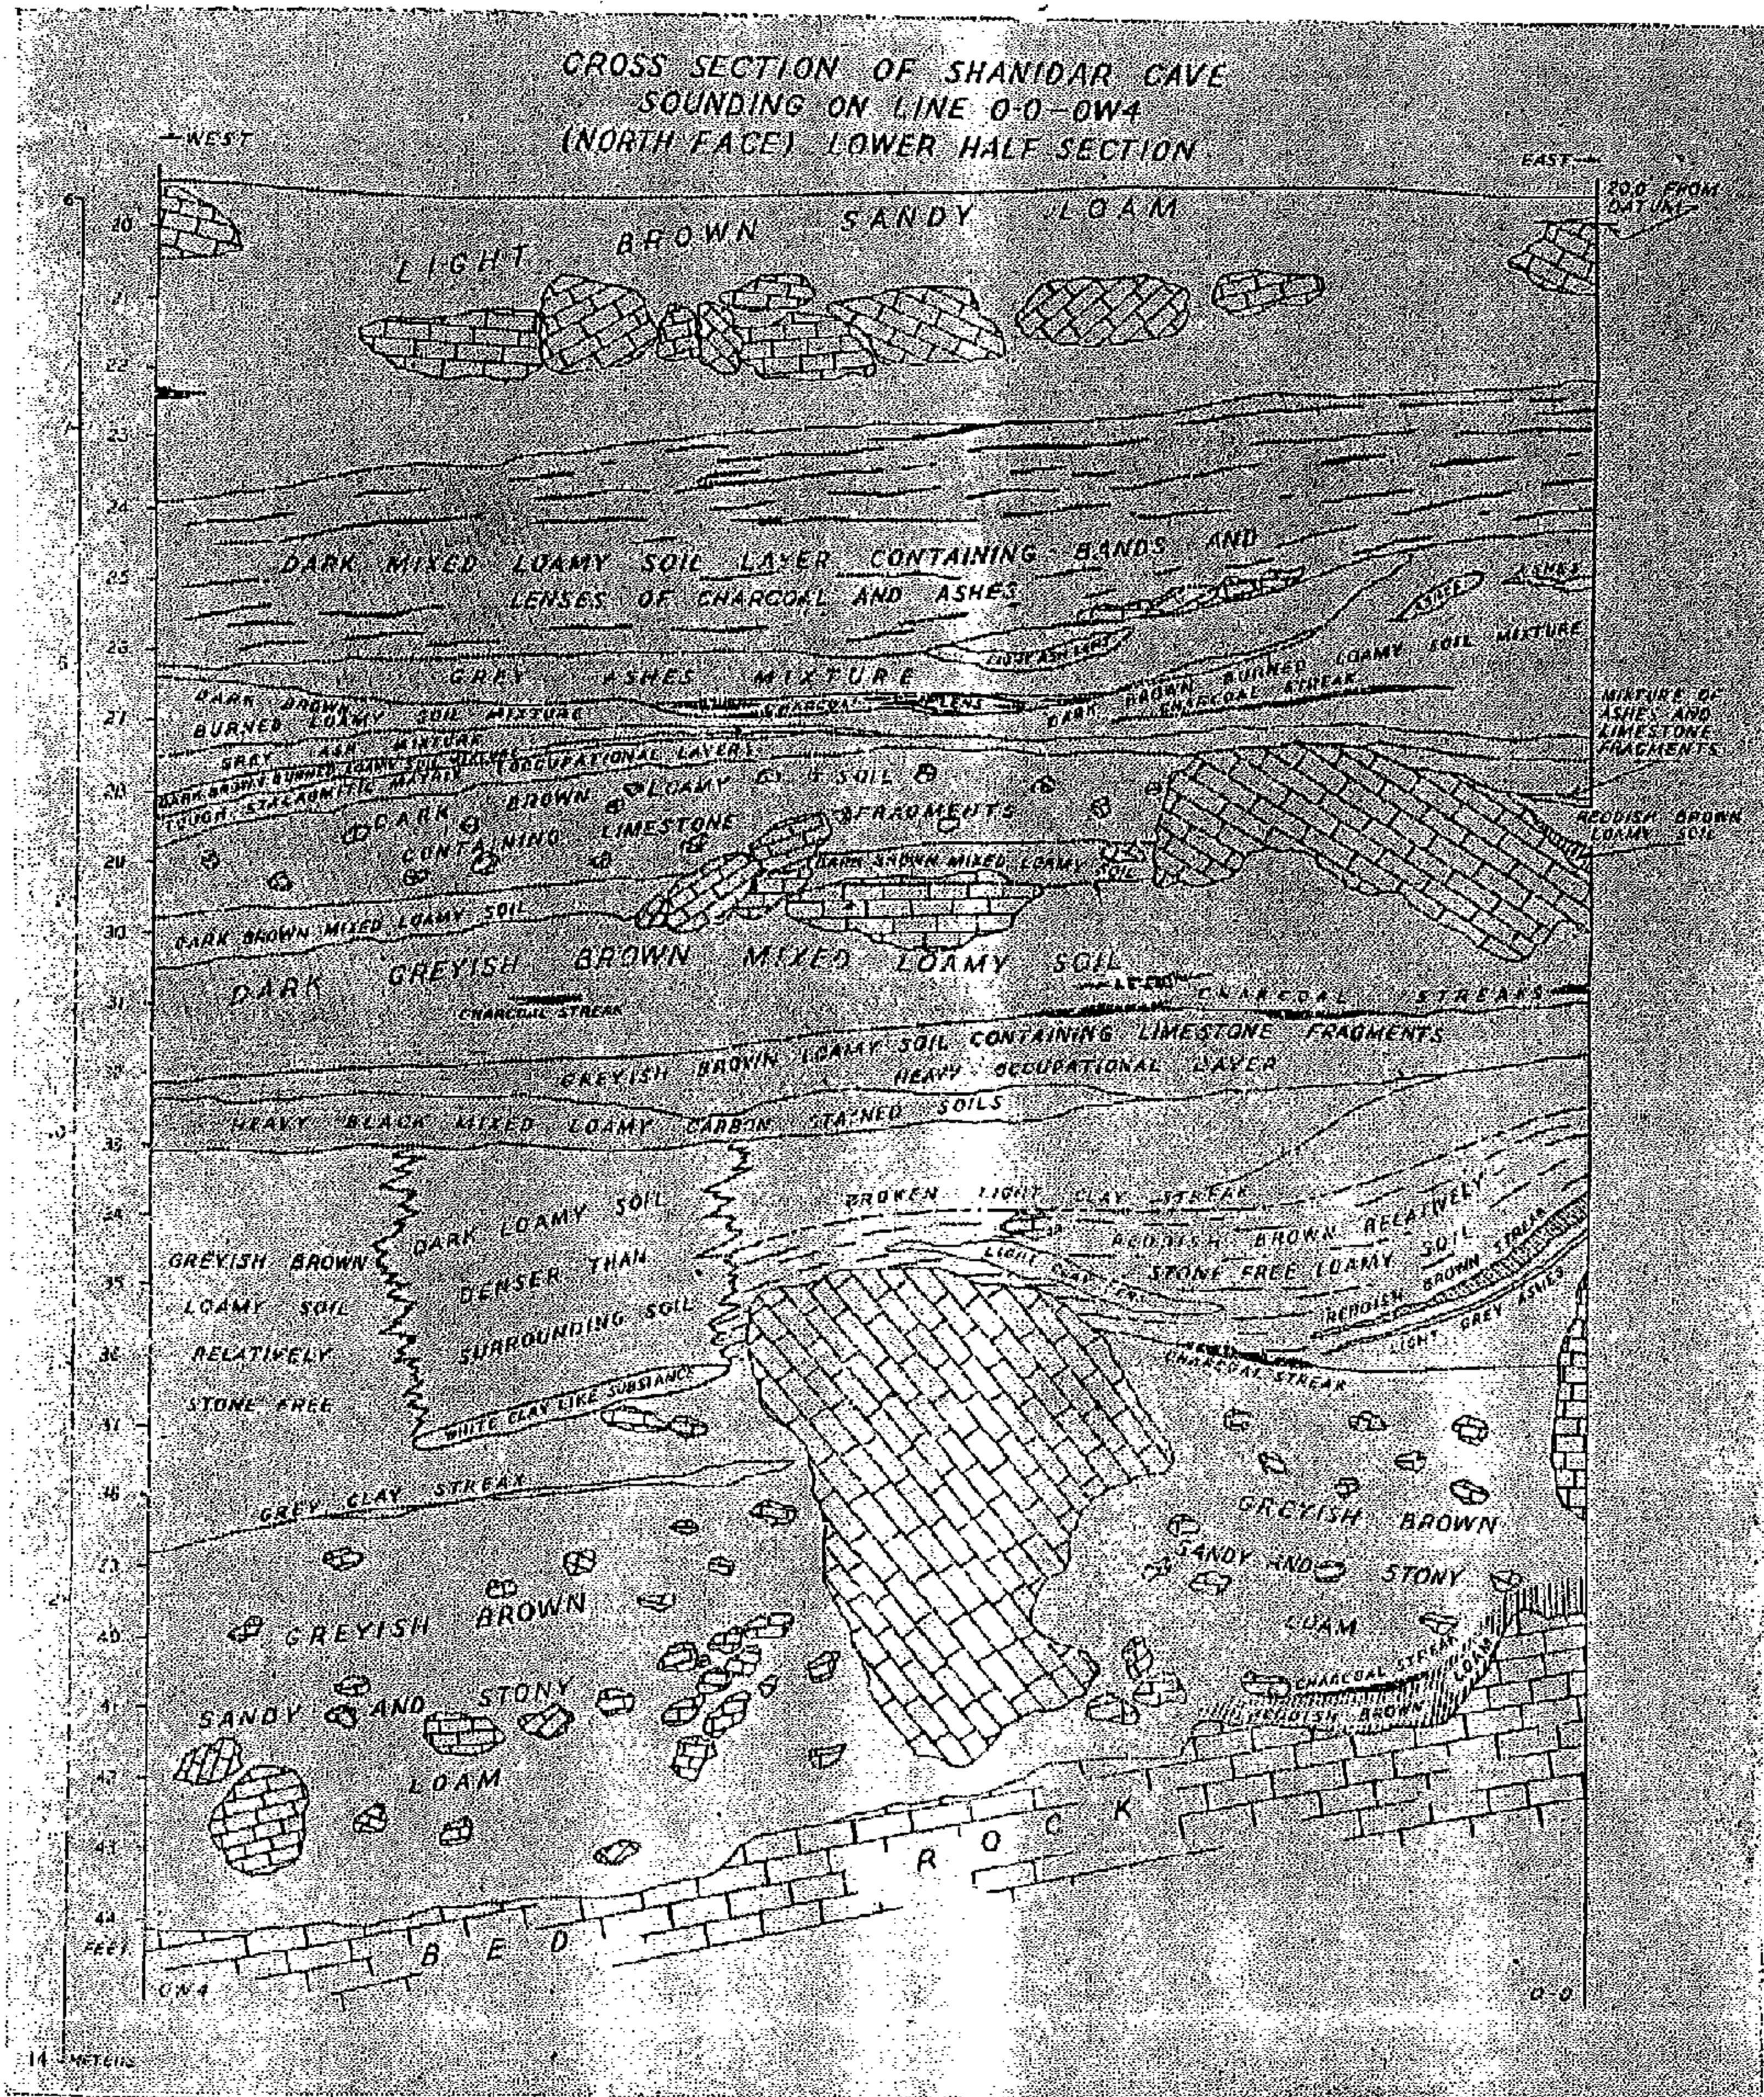 CROSS SECTION OF SHANIDAR CAVE
SOUNDING ON LINE 0-0-0W4
(NORTH FACE) LOWER HALF SECTION
WEST
EAST
20.0 FROM
DATUM
6
20
LIGHT BROWN SANDY LOAM
21
22
7
23
24
DARK MIXED LOAMY SOIL LAYER CONTAINING BANDS AND
25
LENSES OF CHARCOAL AND ASHES
ASHES
ASHES
26
LIGHT ASH LENS
GREY ASHES MIXTURE
DARK BROWN
BURNED LOAMY SOIL MIXTURE
CHARCOAL LENS
DARK BROWN BURNED LOAMY SOIL MIXTURE
CHARCOAL STREAK
27
MIXTURE OF
ASHES AND
LIMESTONE
FRAGMENTS
GREY ASH MIXTURE
DARK BROWN BURNED LOAMY SOIL MIXTURE
TOUGH STALAGMITIC MATRIX OCCUPATIONAL LAYERS
28
DARK BROWN LOAMY SOIL
CONTAINING LIMESTONE FRAGMENTS
REDDISH BROWN
LOAMY SOIL
29
DARK BROWN MIXED LOAMY SOIL
DARK BROWN MIXED LOAMY SOIL
30
DARK GREYISH BROWN MIXED LOAMY SOIL
31
CHARCOAL STREAK
CHARCOAL STREAKS
GREYISH BROWN LOAMY SOIL CONTAINING LIMESTONE FRAGMENTS
HEAVY OCCUPATIONAL LAYER
HEAVY BLACK MIXED LOAMY CARBON STAINED SOILS
33
BROKEN LIGHT CLAY STREAK
34
DARK LOAMY SOIL
DENSER THAN
SURROUNDING SOIL
GREYISH BROWN
LOAMY SOIL
RELATIVELY
STONE FREE
REDDISH BROWN RELATIVELY
STONE FREE LOAMY SOIL
LIGHT CLAY LENS
REDDISH BROWN STREAK
LIGHT GREY ASHES
35
36
CHARCOAL STREAK
WHITE CLAY LIKE SUBSTANCE
37
GREY CLAY STREAK
GREYISH BROWN
SANDY AND STONY
LOAM
GREYISH BROWN
SANDY AND STONY
LOAM
40
CHARCOAL STREAK
REDDISH BROWN LOAM
41
42
43
BED ROCK
44
FEET
0W4
0-0
14 METERS